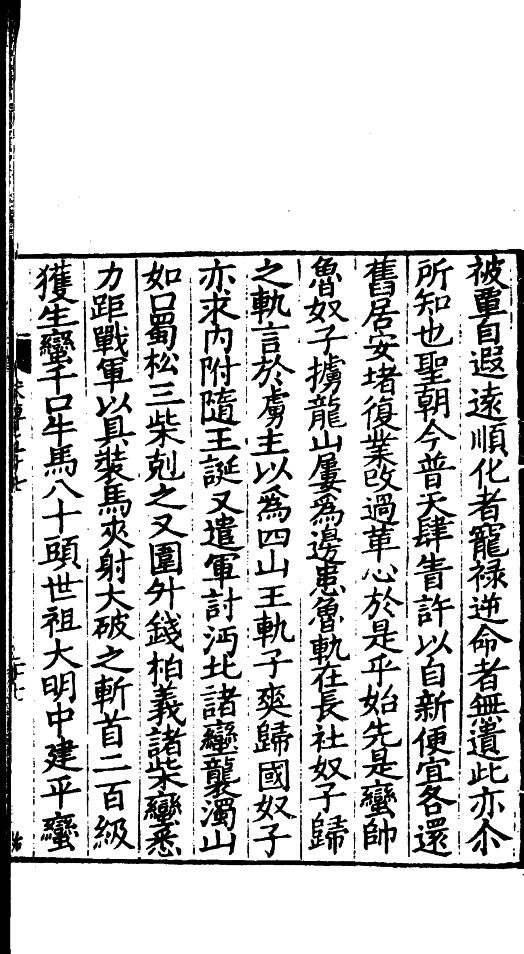 被畺自遐遠順化者寵禄逆命者無遺此亦尒
所知也聖朝今普天肆眚許以自新便宜各還
舊居安堵復業改過革心於是乎始先是蠻帥
魯奴子擄龍山屢為邊患魯軌在長社奴子歸
之軌言於虜主以為四山王軌子爽歸國奴子
亦求内附隨王誕又遣軍討沔北諸蠻襲濁山
如口蜀松三柴剋之又圍外錢柏義諸柴蠻悉
力距戰軍以具裝馬夾射大破之斬首二百級
獲生蠻千口牛馬八十頭世祖大明中建平蠻